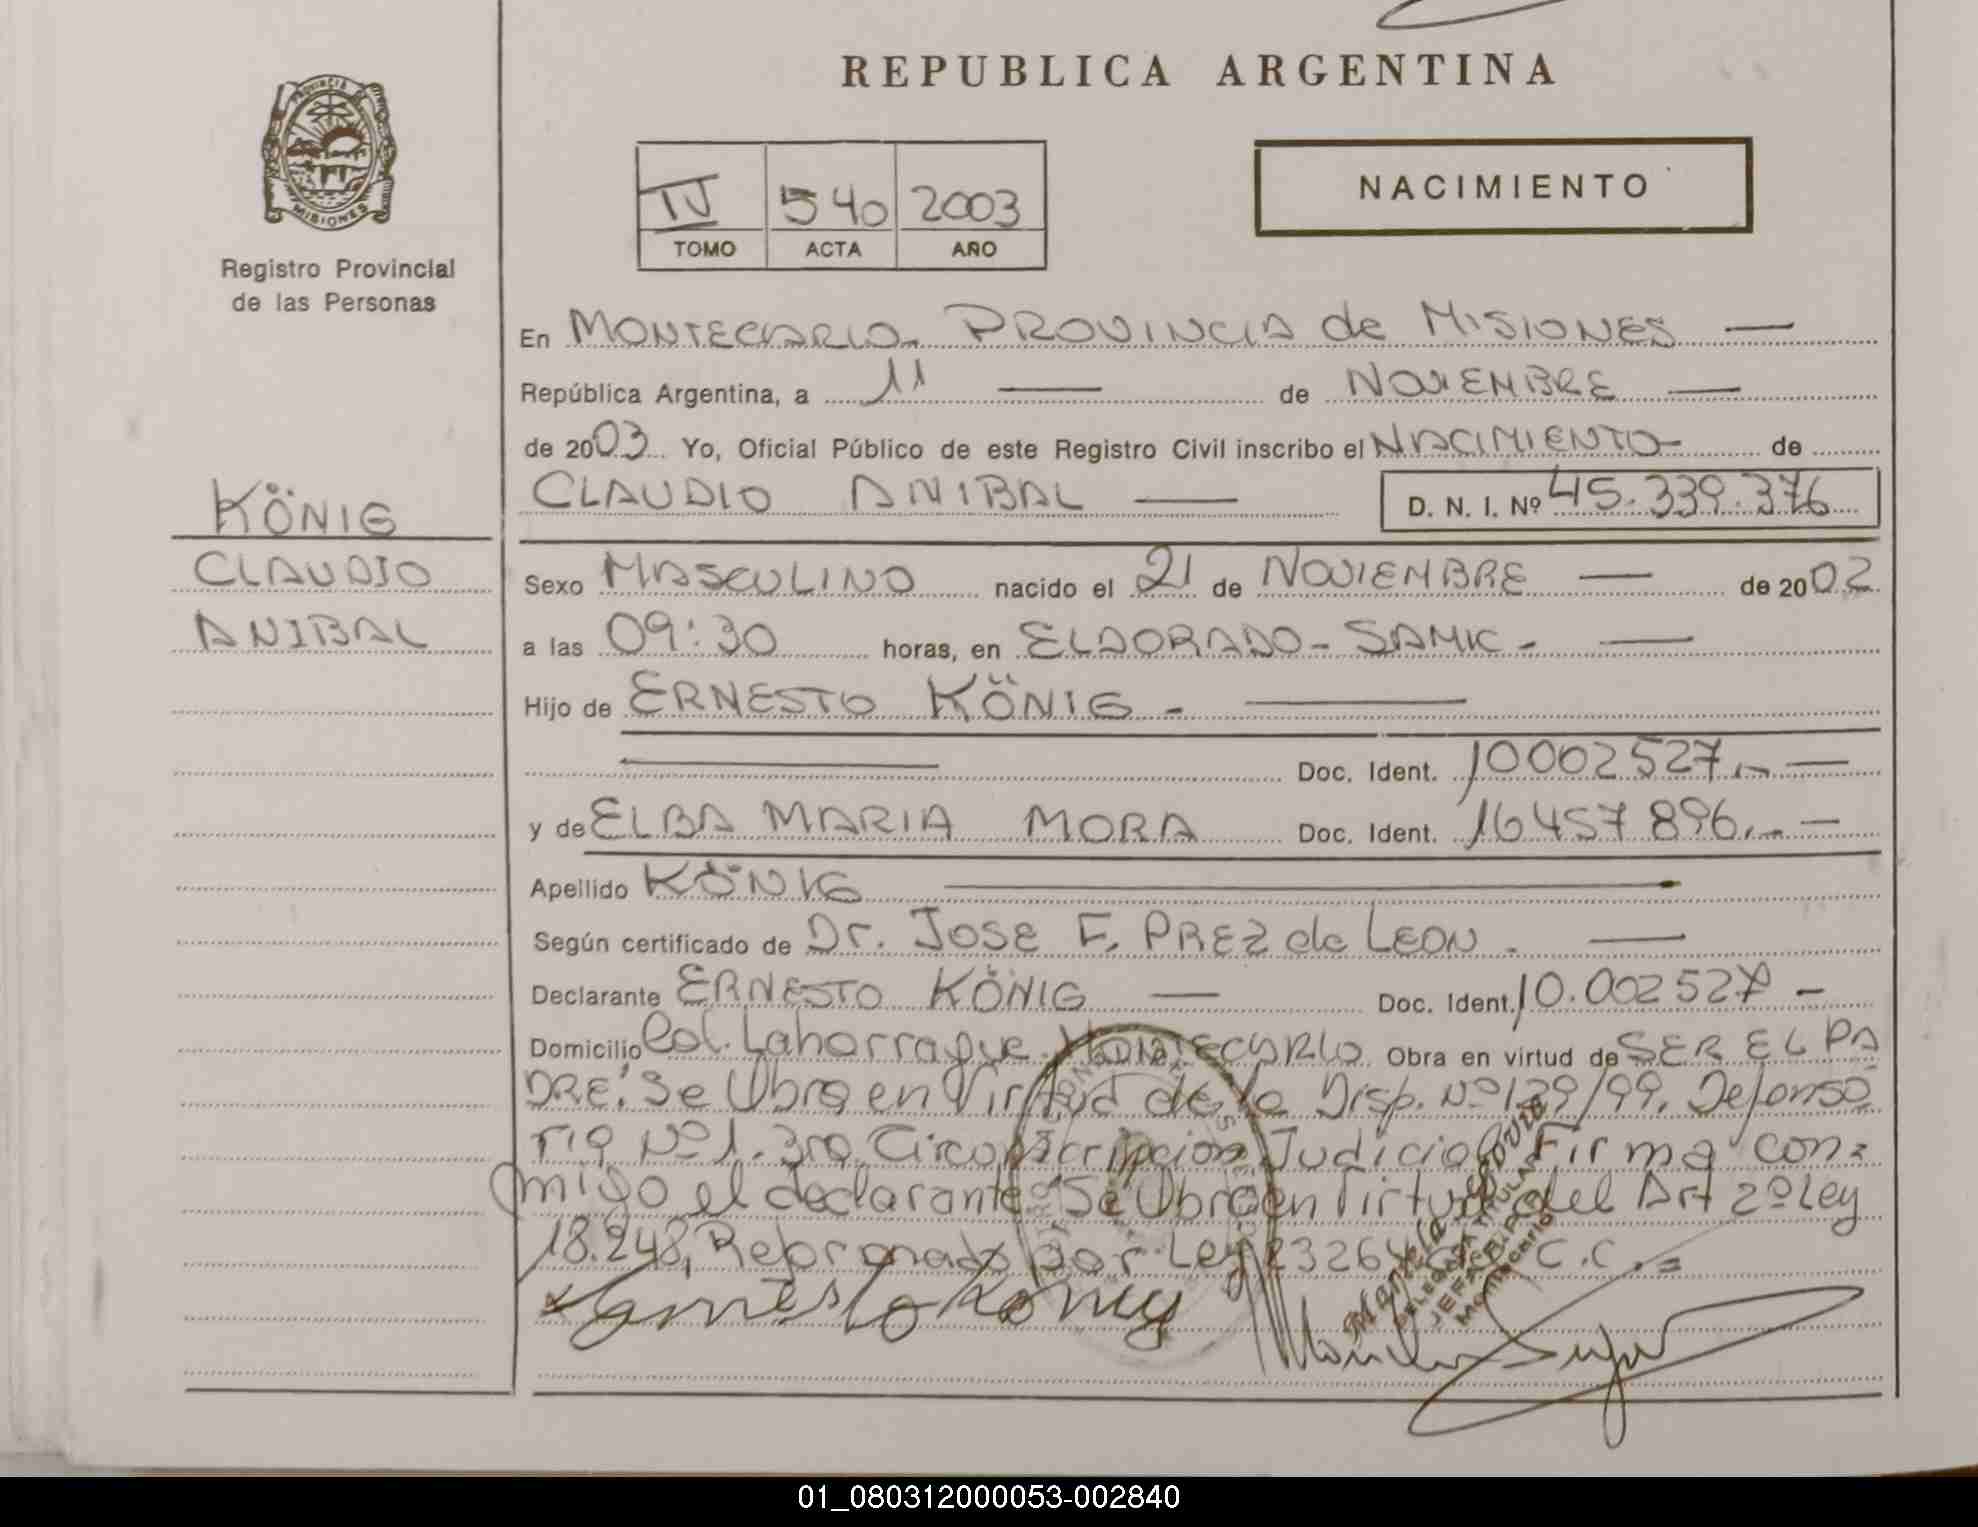 REPUBLICA ARGENTINA
PROVINCIA DE
MISIONES
Registro Provincial
de las Personas
IV 540 2003
TOMO ACTA AÑO
NACIMIENTO
En MONTECARLO - PROVINCIA de MISIONES —
República Argentina, a 11 — de NOVIEMBRE —
de 2003 Yo, Oficial Público de este Registro Civil inscribo el NACIMIENTO - de
CLAUDIO ANIBAL — D. N. I. Nº 45.339.376
KÖNIG
CLAUDIO
ANIBAL
Sexo MASCULINO nacido el 21 de NOVIEMBRE — de 2002
a las 09:30 horas, en ELDORADO - SAMIC - —
Hijo de ERNESTO KÖNIG - —
— Doc. Ident. 10002527.- —
y de ELBA MARIA MORA Doc. Ident. 16457896.- —
Apellido KÖNIG —
Según certificado de Dr. JOSE F. PREZ de LEON. —
Declarante ERNESTO KÖNIG — Doc. Ident. 10.002527 -
Domicilio Col. Laharrague. MONTECARLO Obra en virtud de SER EL PA
DRE: Se Obra en Virtud de la Disp. Nº 129/99. Defenso
ria Nº 1. 3ra Circunscripcion Judicial Firma con=
migo el declarante Se Obra en Virtud del Art 2º Ley
18.248, Reformado por Ley 23264 C.C.=
Ernesto König
DELEGADA TITULAR
Montecarlo
01_080312000053-002840